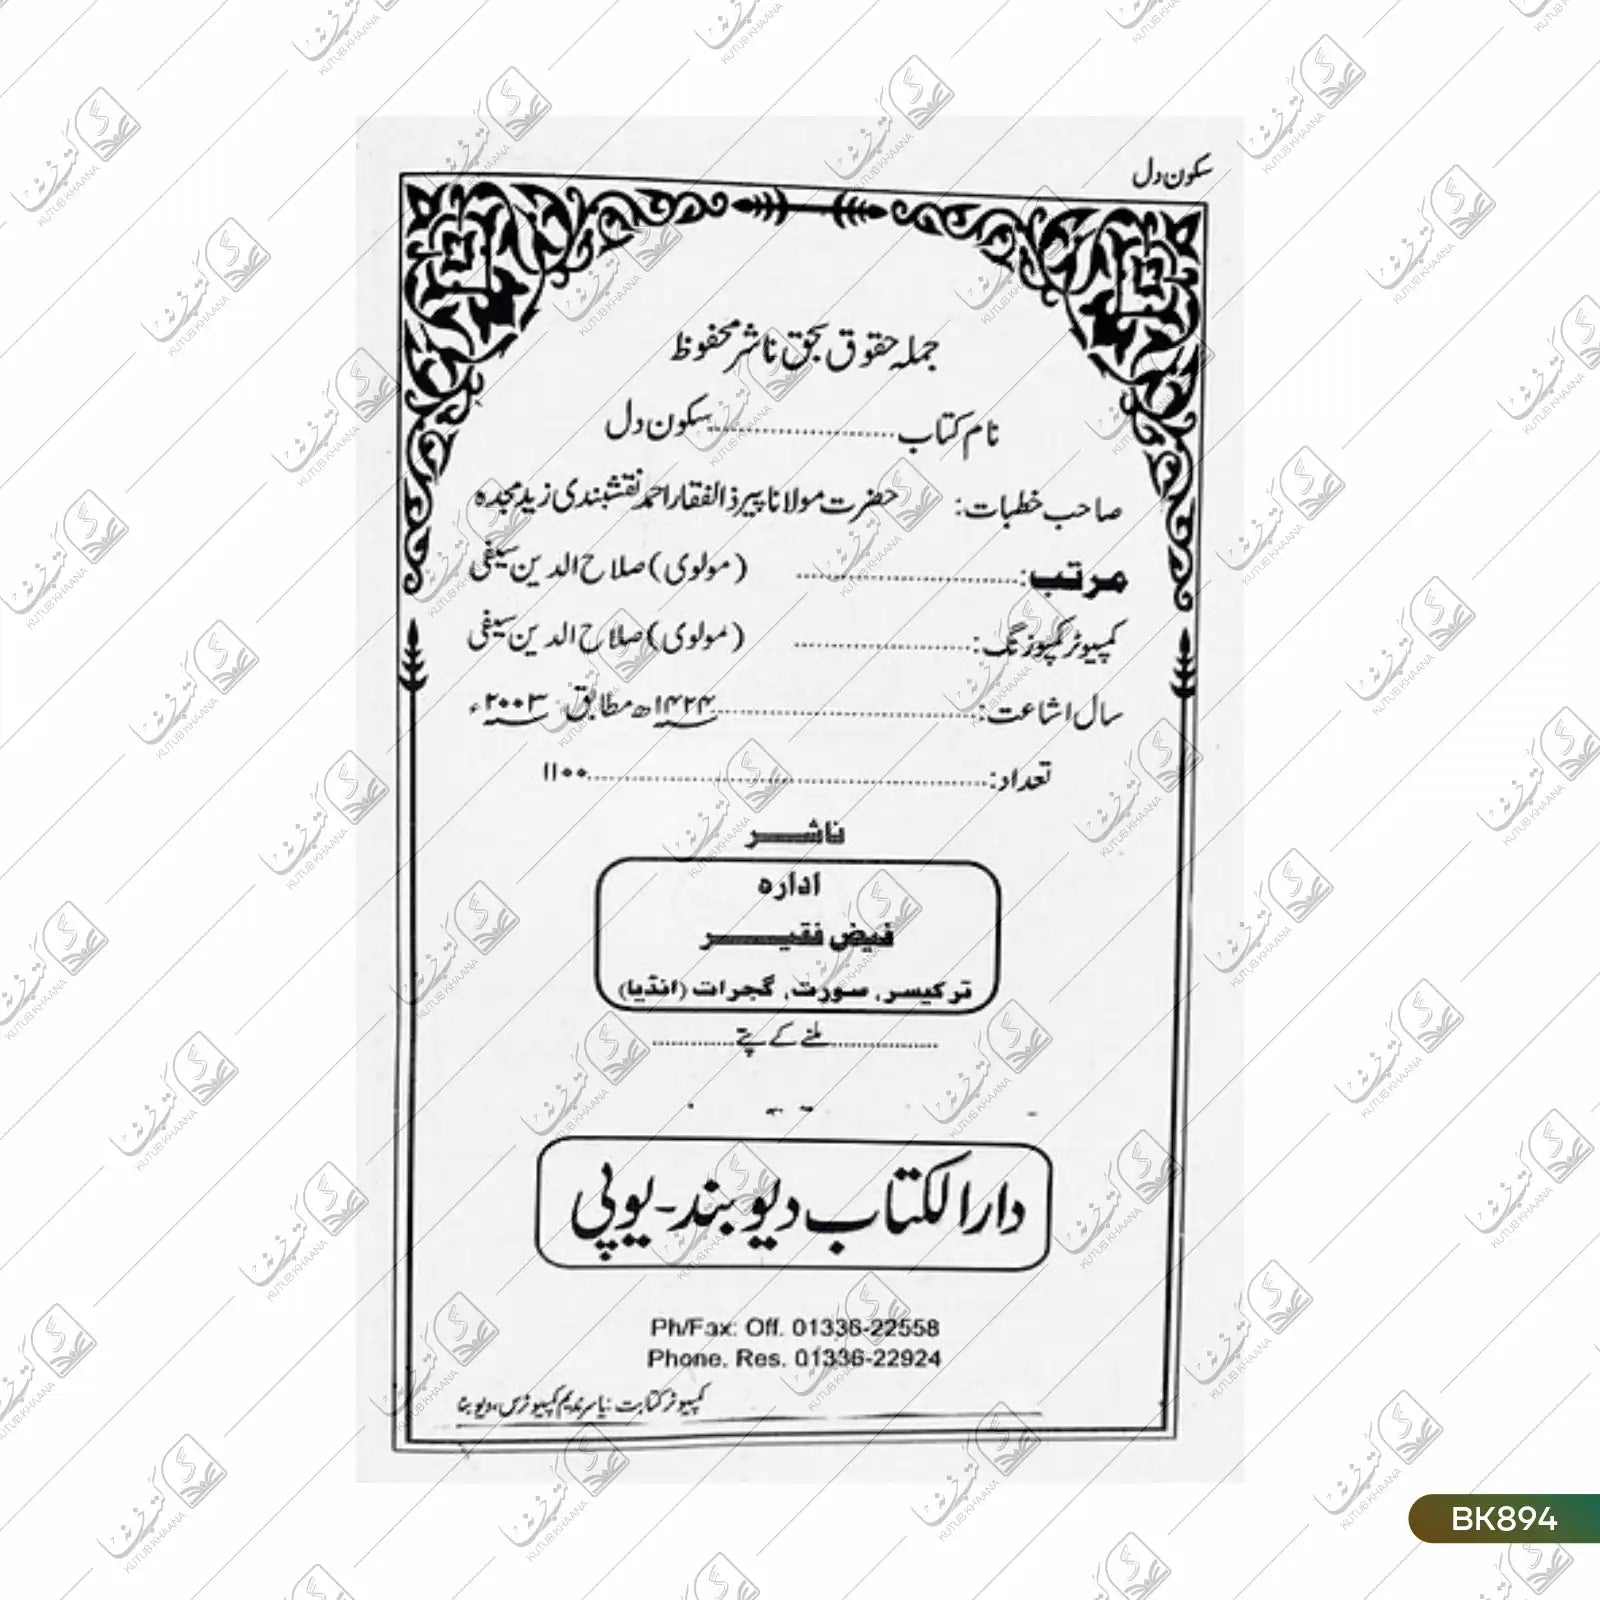 سکون دل
جملہ حقوق بحق ناشر محفوظ
نام کتاب....................سکون دل
صاحب خطبات: حضرت مولانا پیر ذالفقار احمد نقشبندی زید مجدہ
مرتب:.................... (مولوی) صلاح الدین سیفی
کمپیوٹر کمپوزنگ:.................... (مولوی) صلاح الدین سیفی
سال اشاعت:....................۱۴۲۴ھ مطابق ۲۰۰۳ء
تعداد:....................۱۱۰۰
ناشر
ادارہ
فیض فقیر
ترکیسر، سورت، گجرات (انڈیا)
............ملنے کے پتے............
دارالکتاب دیوبند۔یوپی
Ph/Fax: Off. 01336-22558
Phone. Res. 01336-22924
کمپیوٹر کتابت: یاسر ندیم کمپیوٹرس، دیوبند
BK894
کتب خانہ
KUTUB KHAANA